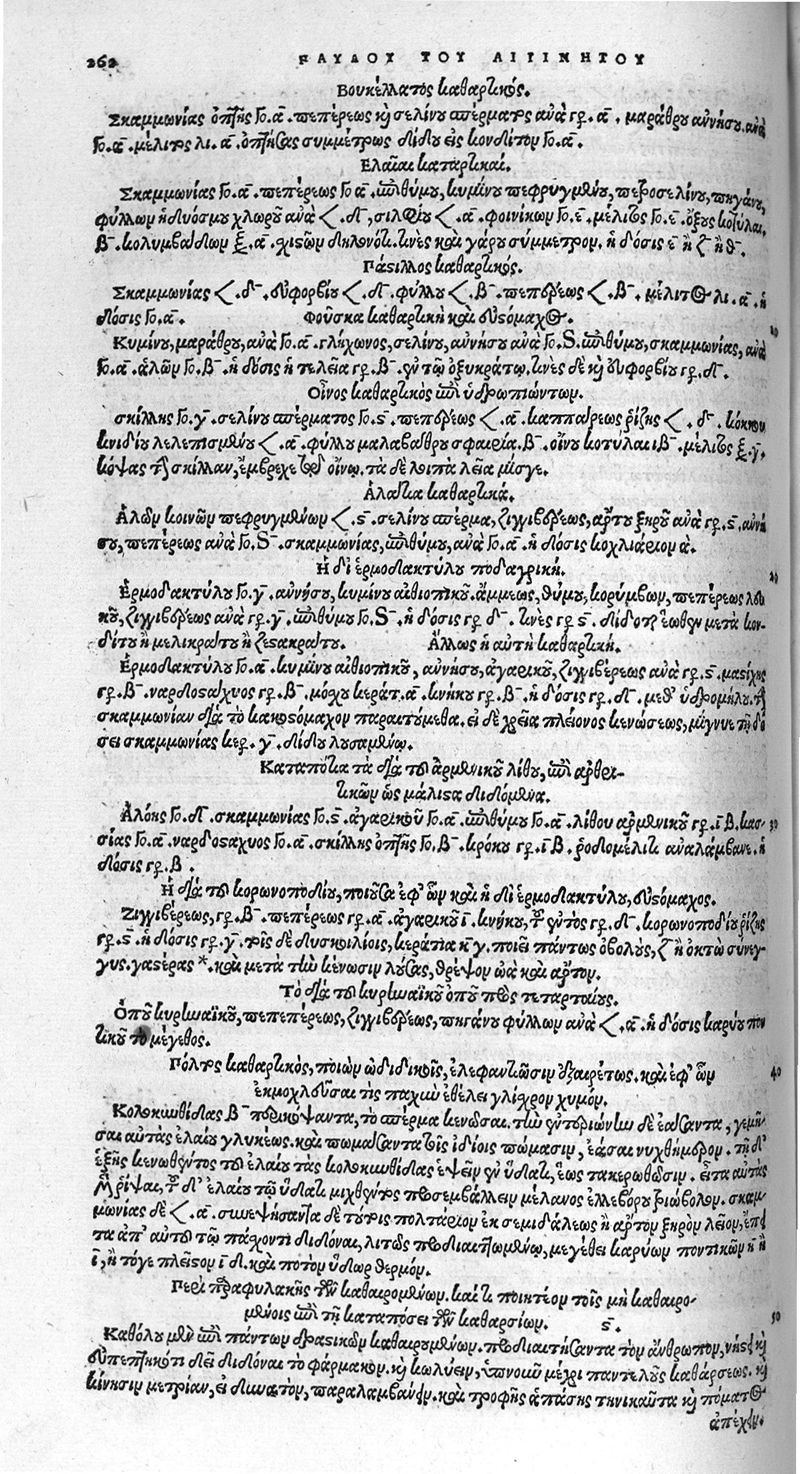 262 ΠΑΥΛΟΥ ΤΟΥ ΑΙΓΙΝΗΤΟΥ
Βουκέλλατος καθαρτικός.
Σκαμμωνίας ὀπτῆς Γο.ᾱ. πεπέρεως καὶ σελίνου σπέρματος ἀνὰ γρ.ᾱ. μαράθρου ἀννήσου ἀνὰ
Γο.ᾱ. μέλιτος λι.ᾱ. ὀπτήσας συμμέτρως δίδου εἰς κονδῖτον Γο.ᾱ.
Ἐλαῖαι καταρτικαί.
Σκαμμωνίας Γο.ᾱ. πεπέρεως Γο ᾱ. ἐπιθύμου, κυμίνου πεφρυγμένου, πετροσελίνου, πηγάνου,
φύλλων ἡδυόσμου χλωροῦ ἀνὰ <.δ, σιλφίου <.ᾱ. φοινίκων Γο.ε̄. μέλιτος Γο.ε̄. ὄξους κοτύλαι
β. κολυμβάδων ξ.ᾱ. χιστῶν δηλονότι. τινὲς καὶ γάρου σύμμετρον. ἡ δόσις ε̄ ἢ ζ ἢ θ.
Πάσιλλος καθαρτικός.
Σκαμμωνίας <.δ. εὐφορβίου <.δ. φύλλου <.β. πεπέρεως <.β. μέλιτος λι.ᾱ. ἡ
δόσις Γο.ᾱ. Φοῦσκα καθαρτικὴ καὶ εὐστόμαχος.
Κυμίνου, μαράθρου, ἀνὰ Γο.ᾱ. γλήχωνος, σελίνου, ἀννήσου ἀνὰ Γο.S. ἐπιθύμου, σκαμμωνίας, ἀνὰ
Γο.ᾱ. ἁλῶν Γο.β. ἡ δόσις ἡ τελεία γρ.β. ἐν τῷ ὀξυκράτῳ. τινὲς δὲ καὶ εὐφορβίου γρ.δ.
Οἶνος καθαρτικὸς ἐπὶ ὑδρωπιώντων.
σκίλλης Γο.γ. σελίνου σπέρματος Γο.ς. πεπέρεως <.ᾱ. καππάρεως ῥίζης <.δ. κόκκου
κνιδίου λελεπισμένου <.ᾱ. φύλλου μαλαβάθρου σφαιρία.β. οἴνου κοτύλαι ιβ. μέλιτος ξ.γ.
κόψας τὴν σκίλλαν, ἔμβρεχε τῷ οἴνῳ. τὰ δὲ λοιπὰ λεῖα μίσγε.
Ἁλάτια καθαρτικά.
Ἁλῶν κοινῶν πεφρυγμένων <.ς. σελίνου σπέρμα, ζιγγιβέρεως, ἄρτου ξηροῦ ἀνὰ γρ.ς. ἀννή
σου, πεπέρεως ἀνὰ Γο.S. σκαμμωνίας, ἐπιθύμου, ἀνὰ Γο.ᾱ. ἡ δόσις κοχλιάριον ᾱ.
Ἡ δι' ἑρμοδακτύλου ποδαγρική.
Ἑρμοδακτύλου Γο.γ. ἀννήσου, κυμίνου αἰθιοπικοῦ, ἄμμεως, θύμου, κορύμβων, πεπέρεως λευ
κοῦ, ζιγγιβέρεως ἀνὰ γρ.γ. ἐπιθύμου Γο.S. ἡ δόσις γρ δ. τινὲς γρ ς. δίδοται ἕωθεν μετὰ κον-
δίτου ἢ μελικράτου ἢ ζεστακράτου. Ἄλλως ἡ αὐτὴ καθαρτική.
Ἑρμοδακτύλου Γο.ᾱ. κυμίνου αἰθιοπικοῦ, ἀννήσου, ἀγαρικοῦ, ζιγγιβέρεως ἀνὰ γρ.ς. μαστίχης
γρ.β. ναρδοστάχυος γρ.β. μόχου κεράτ.ᾱ. κνήκου γρ.β. ἡ δόσις γρ.δ. μεθ' ὑδρομήλου. τὴν
σκαμμωνίαν διὰ τὸ κακοστόμαχον παραιτούμεθα. εἰ δὲ χρεία πλείονος κενώσεως, μίγνυε τῇ δό
σει σκαμμωνίας κερ.γ. δίδου λυσαμένῳ.
Καταπότια τὰ διὰ τοῦ ἀρμενικοῦ λίθου, ἐπὶ ἀρθρι-
τικῶν ὡς μάλιστα διδόμενα.
Ἀλόης Γο.δ. σκαμμωνίας Γο.ς. ἀγαρικοῦ Γο.ᾱ. ἐπιθύμου Γο.ᾱ. λίθου ἀρμενικοῦ γρ.ιβ. κασ-
σίας Γο.ᾱ. ναρδοσταχυος Γο.ᾱ. σκίλλης ὀπτῆς Γο.β. κρόκου γρ.ιβ. ῥοδομέλιτι ἀναλάμβανε. ἡ
δόσις γρ.β.
Ἡ διὰ τοῦ κορωνοποδίου, ποιοῦσα ἐφ' ὧν καὶ ἡ δι' ἑρμοδακτύλου, εὐστόμαχος.
Ζιγγιβέρεως, γρ.β. πεπέρεως γρ.ᾱ. ἀγαρικοῦ ι. κνήκου, τοῦ ἐντὸς γρ.δ. κορωνοποδίου ῥίζης
γρ.ς. ἡ δόσις γρ.γ. τοῖς δὲ δυσκοιλίοις, κεράτια κγ. ποιεῖ πάντως ὀβολοὺς, ζ ἢ ὀκτὼ συνεγ-
γυς. γαστέρας *. καὶ μετὰ τὴν κένωσιν λούσας, θρέψον ὠὰ καὶ ἄρτον.
Τὸ διὰ τοῦ κυρηναϊκοῦ ὀποῦ πρὸς τεταρταίους.
Ὀποῦ κυρηναϊκοῦ, πεπεπέρεως, ζιγγιβέρεως, πηγάνου φύλλων ἀνὰ <.ᾱ. ἡ δόσις καρύου πον
τικοῦ τὸ μέγεθος.
Πόλτος καθαρτικὸς, ποιῶν ὠδιδικοῖς, ἐλεφαντιῶσιν ἐξαιρέτως. καὶ ἐφ' ὧν
ἐκμοχλεῦσαι τὶς παχὺν ἐθέλει γλίχρον χυμόν.
Κολοκυνθίδας β περικόψαντα, τὸ σπέρμα κενῶσαι. τὴν ἐντεριώνην δὲ ἐάσαντα, γεμῆ-
σαι αὐτὰς ἐλαίου γλυκέως. καὶ πωμάσαντα τοῖς ἰδίοις πώμασιν, ἐάσαι νυχθήμερον. τῇ δ'
ἑξῆς κενωθέντος τοῦ ἐλαίου τὰς κολοκυνθίδας ἑψεῖν ἐν ὕδατι, ἕως τακερωθῶσιν. εἶτα αὐτὰς
μὲν ῥίψαι, τοῦ δ' ἐλαίου τῷ ὕδατι μιχθέντος προσεμβάλλειν μέλανος ἑλλεβόρου τριώβολον. σκαμ-
μωνίας δὲ <.ᾱ. συνεψήσαντα δὲ τούτοις πολτάριον ἐκ σεμιδάλεως ἢ ἄρτον ξηρὸν λεῖον, ἔπει
τα ἀπ' αὐτοῦ τῷ πάχοντι διδόναι, λιτῶς προδιαιτωμένῳ, μεγέθει καρύων ποντικῶν η ἢ
ῑ, ἢ τόγε πλεῖστον ιδ. καὶ ποτὸν ὕδωρ θερμόν.
Περὶ παραφυλακῆς τῶν καθαιρομένων. καί τι ποιητέον τοῖς μὴ καθαιρο-
μένοις ἐπὶ τῇ καταπόσει τῶν καθαρσίων. ς.
Καθόλου μὲν ἐπὶ πάντων δραστικῶν καθαιρομένων. προδιαιτήσαντα τὸν ἄνθρωπον, νήστει καὶ
εὐπεπτηκότι δεῖ διδόναι τὸ φάρμακον. καὶ κωλύειν, ὑπνοῦν μέχρι παντελοῦς καθάρσεως. καὶ
κίνησιν μετρίαν, εἰ δυνατὸν, παραλαμβάνειν. καὶ τροφῆς ἁπάσης τηνικαῦτα καὶ πόματος
ἀπέχειν.